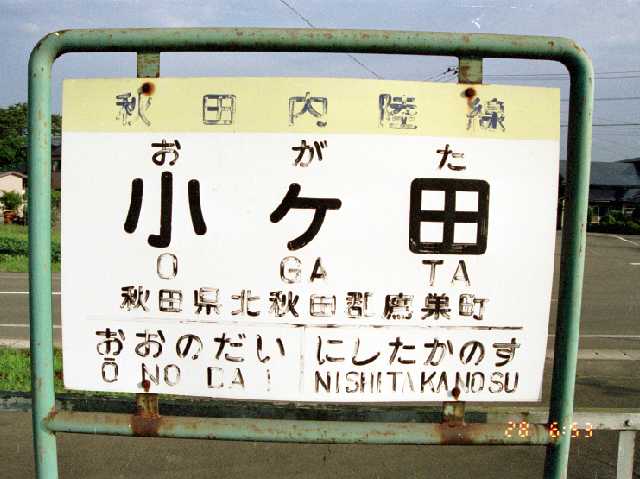 秋田内陸線
おがた
小ケ田
O GA TA
秋田県北秋田郡鷹巣町
おおのだい
ŌNODAI
にしたかのす
NISHITAKANOSU
28 6:53